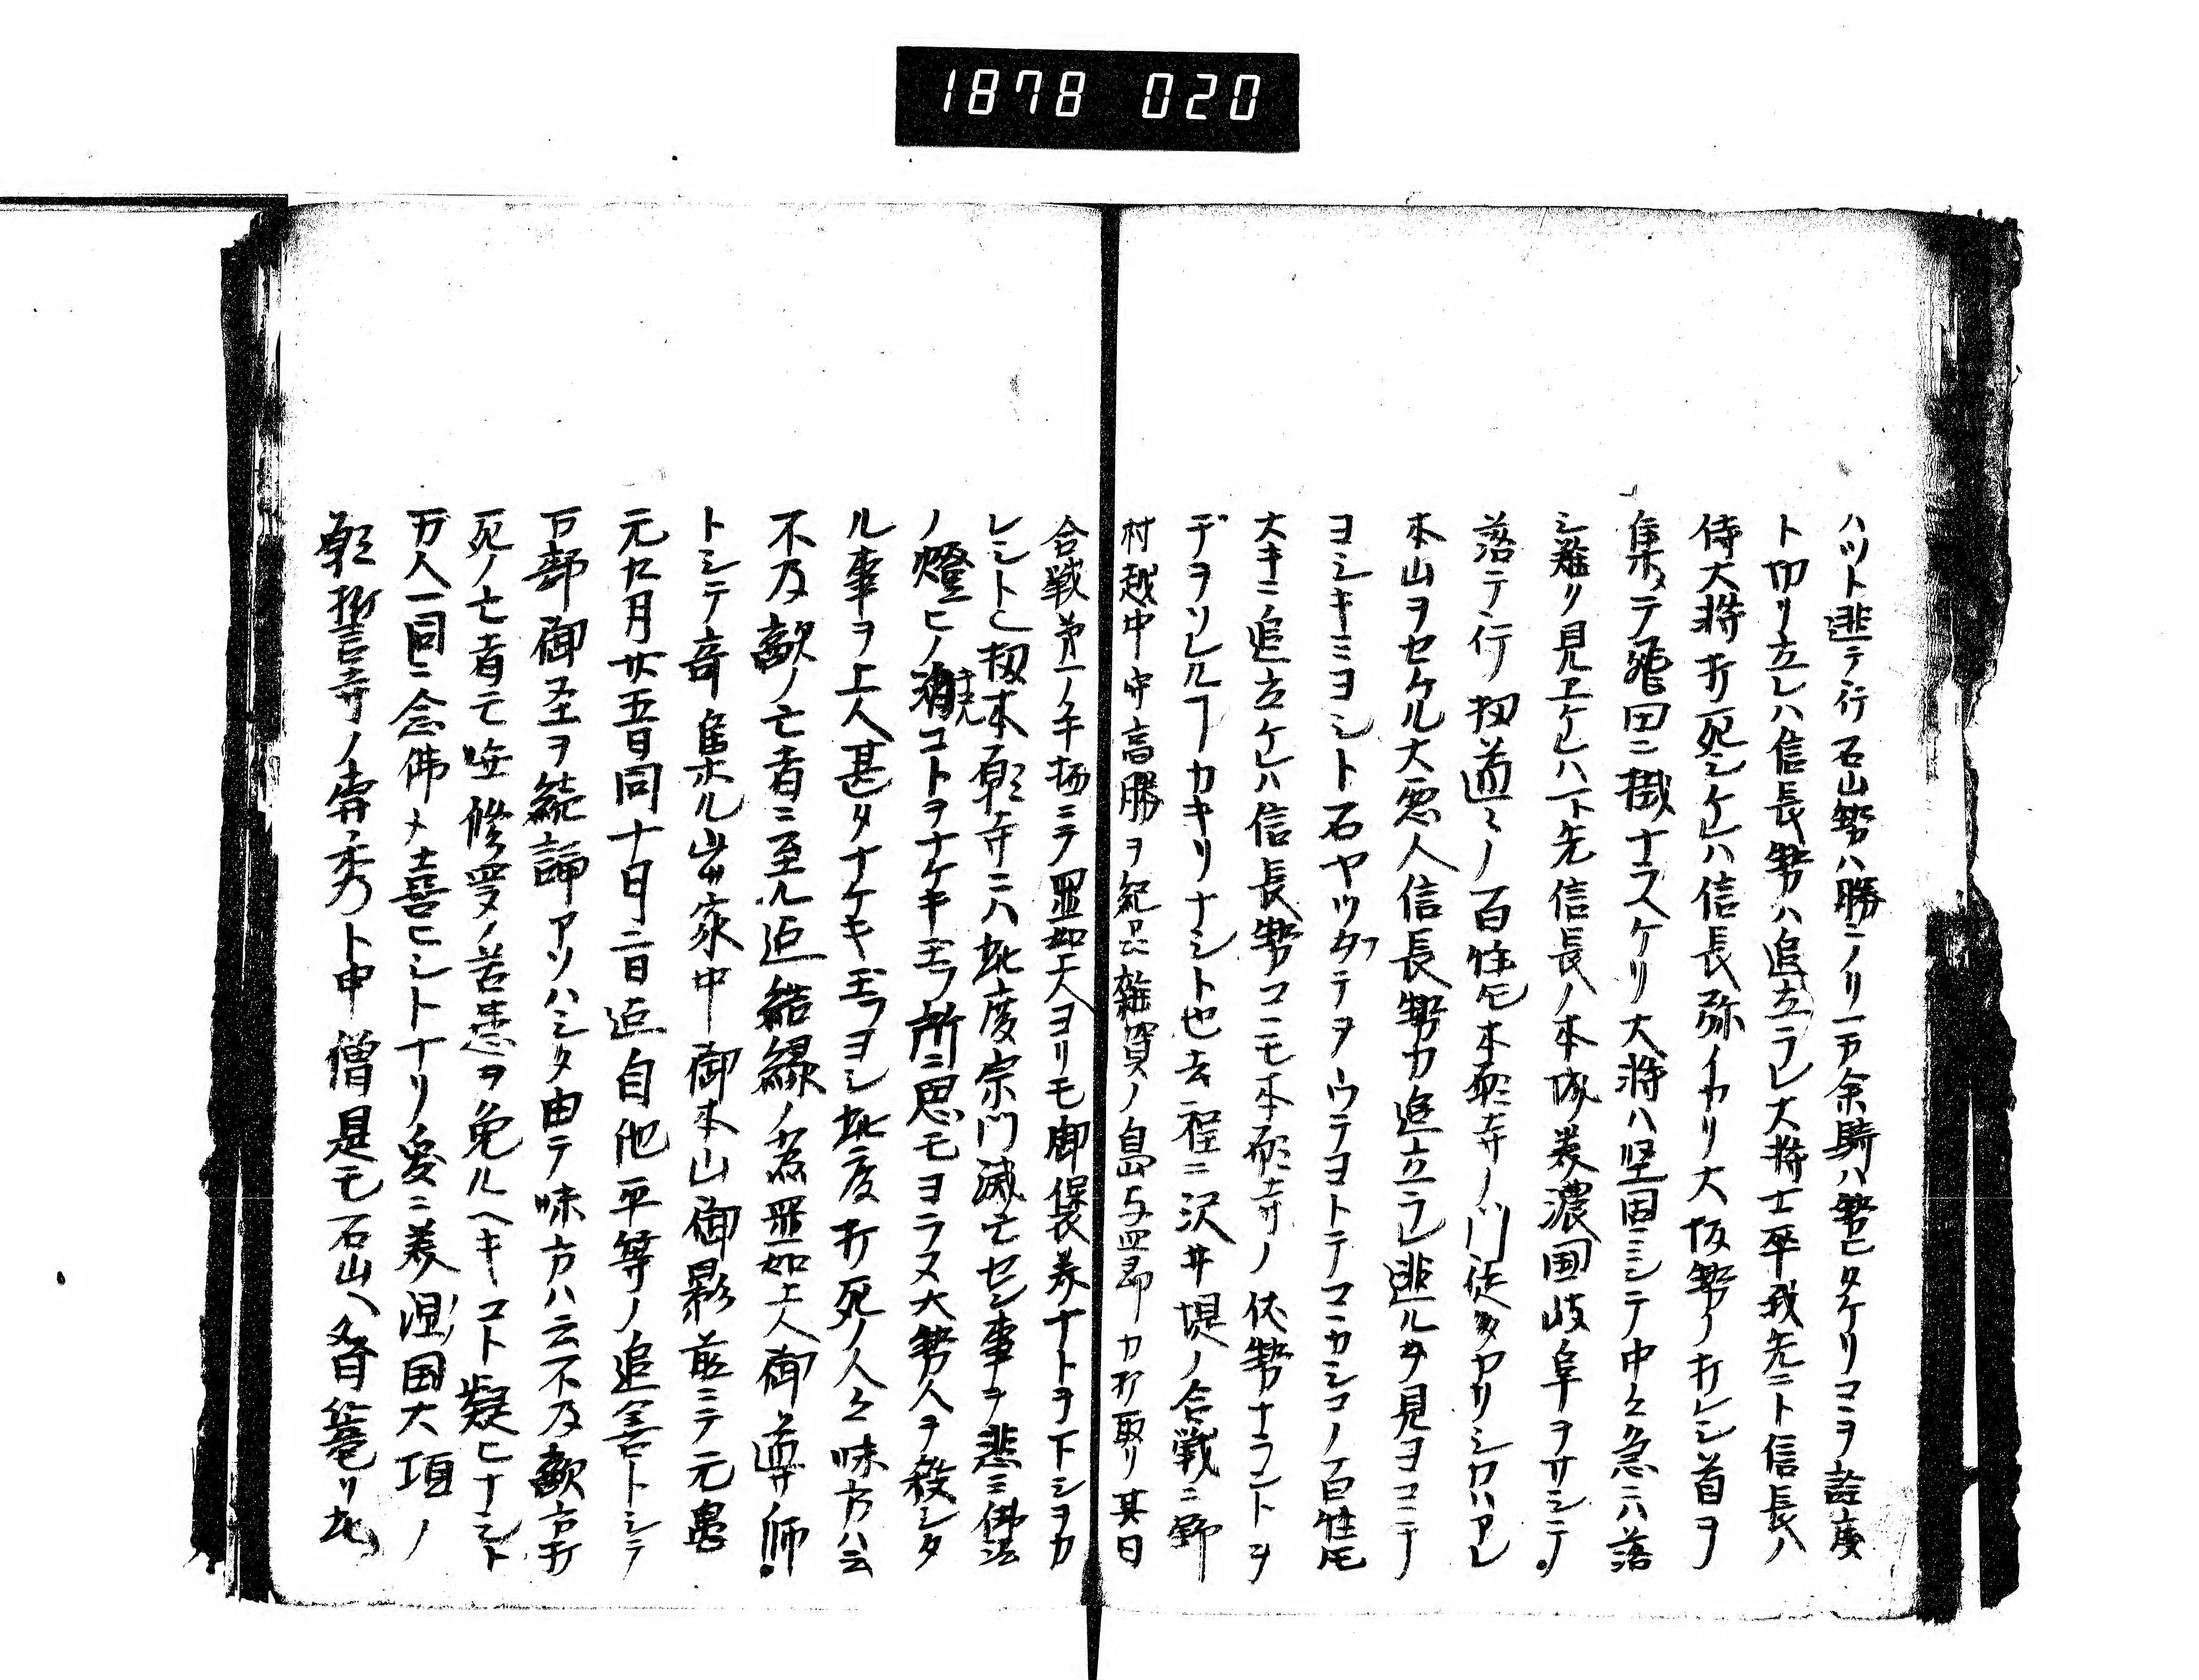 1878 020
ハツト逃テ行石山勢ハ勝ニノリ一万余騎ハ勢ヒタケリコヽヲ詮度
ト切リ立レハ信長勢ハ追立ラレ大将士卒我先ニト信長ハ
侍大将打死シケレハ信長弥イカリ大阪勢ノ打レシ首ヲ
集メテ飛田ニ掛ナラスケリ大将ハ堅固ニシテ中々急ニハ落
シ難ク見エケレハ一ト先信長ノ本城美濃国岐阜ヲサシテ
落テ行扨道々ノ百姓𪜈本願寺ノ門徒多ヤリシカハアレ
本山ヲセケル大悪人信長勢カ追立ラレ逃ルヲ見ヨコヽニテ
ヨシキミヨシト石ヤツタテヲウテヨトテコヽカシコノ百姓𪜈
大キニ追立ケレハ信長勢コヽニモ本願寺ノ伏勢ナラントヲ
デヲソレルヿカキリナシト也去程ニ沢井堤ノ合戦ニ野
村越中守高勝ヲ紀品雑賀ノ島与四郎カ打取リ其日
合戦第一ノ手抦ニテ顕如大ヨリモ御保美ナトヲ下シヲカ
レシト也扨本願寺ニハ此度宗門滅亡セン事ヲ悲ミ佛法
ノ燈ヒノ消コトヲナケキ玉フ所ニ思モヨラス大勢人ヲ殺シタ
ル事ヲ上人甚タナケキ玉フヨシ此度打死ノ人々味方ハ云
不及敵ノ亡者ニ至ル迄結縁ノ為顕如上人御導師
トシテ音集ホル山家中御本山御影前ニテ元亀
元九月廿五日同十日二日迄自他平等ノ追善トシテ
万部御圣ヲ続誦アソハシタ由テ味方ハ云不及敵方打
死ノ亡者モ無修受ノ苦患ヲ免ルヘキコト疑ヒナシト
万人一同ニ念佛メ喜ヒシトナリ爰ニ美濃国大垣ノ
願誓寺ノ専秀ト申僧是モ石山ヘ加番篭リ此